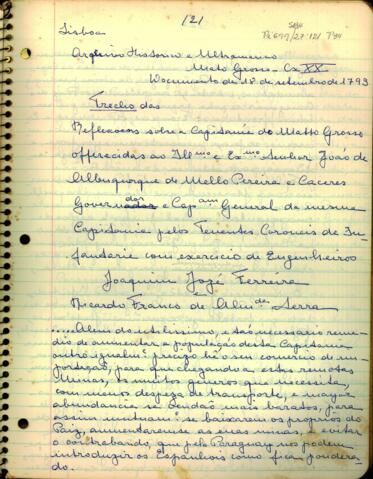 121
Lisboa
Arquivo Historico e Ultramarino
Mato Grosso - Cx XX
Documento de 18 de setembro de 1793
Trecho das
Reflexoens sobre a Capitania do Matto Grosso
offerecidas ao Ill.mo e Ex.mo Senhor João de
Albuquerque de Mello Pereira e Caceres
Governador e Cap.am General da mesma
Capitania pelos Tenentes Coroneis de In-
fantaria com exercicio de Engenheiros
Joaquim Jozé Ferreira
Ricardo Franco de Alm.da Serra
.....Alem do utilissimo, e tão necessario reme-
dio de aumentar a população desta Capitania
outro igualm.e precizo hé o seu comercio de im-
portação, para que chegando a estas remotas
Minas, os muitos generos que necessita,
com menos despeza de transporte, e mayor
abundancia se vendão mais baratos, para
assim se baixarem os proprios do
Paiz, aumentarem-se as ricas minas, e evitar
o contrabando, que pelo Paraguay nos podem
introduzir os Espanhoes como fica pondera-
do.